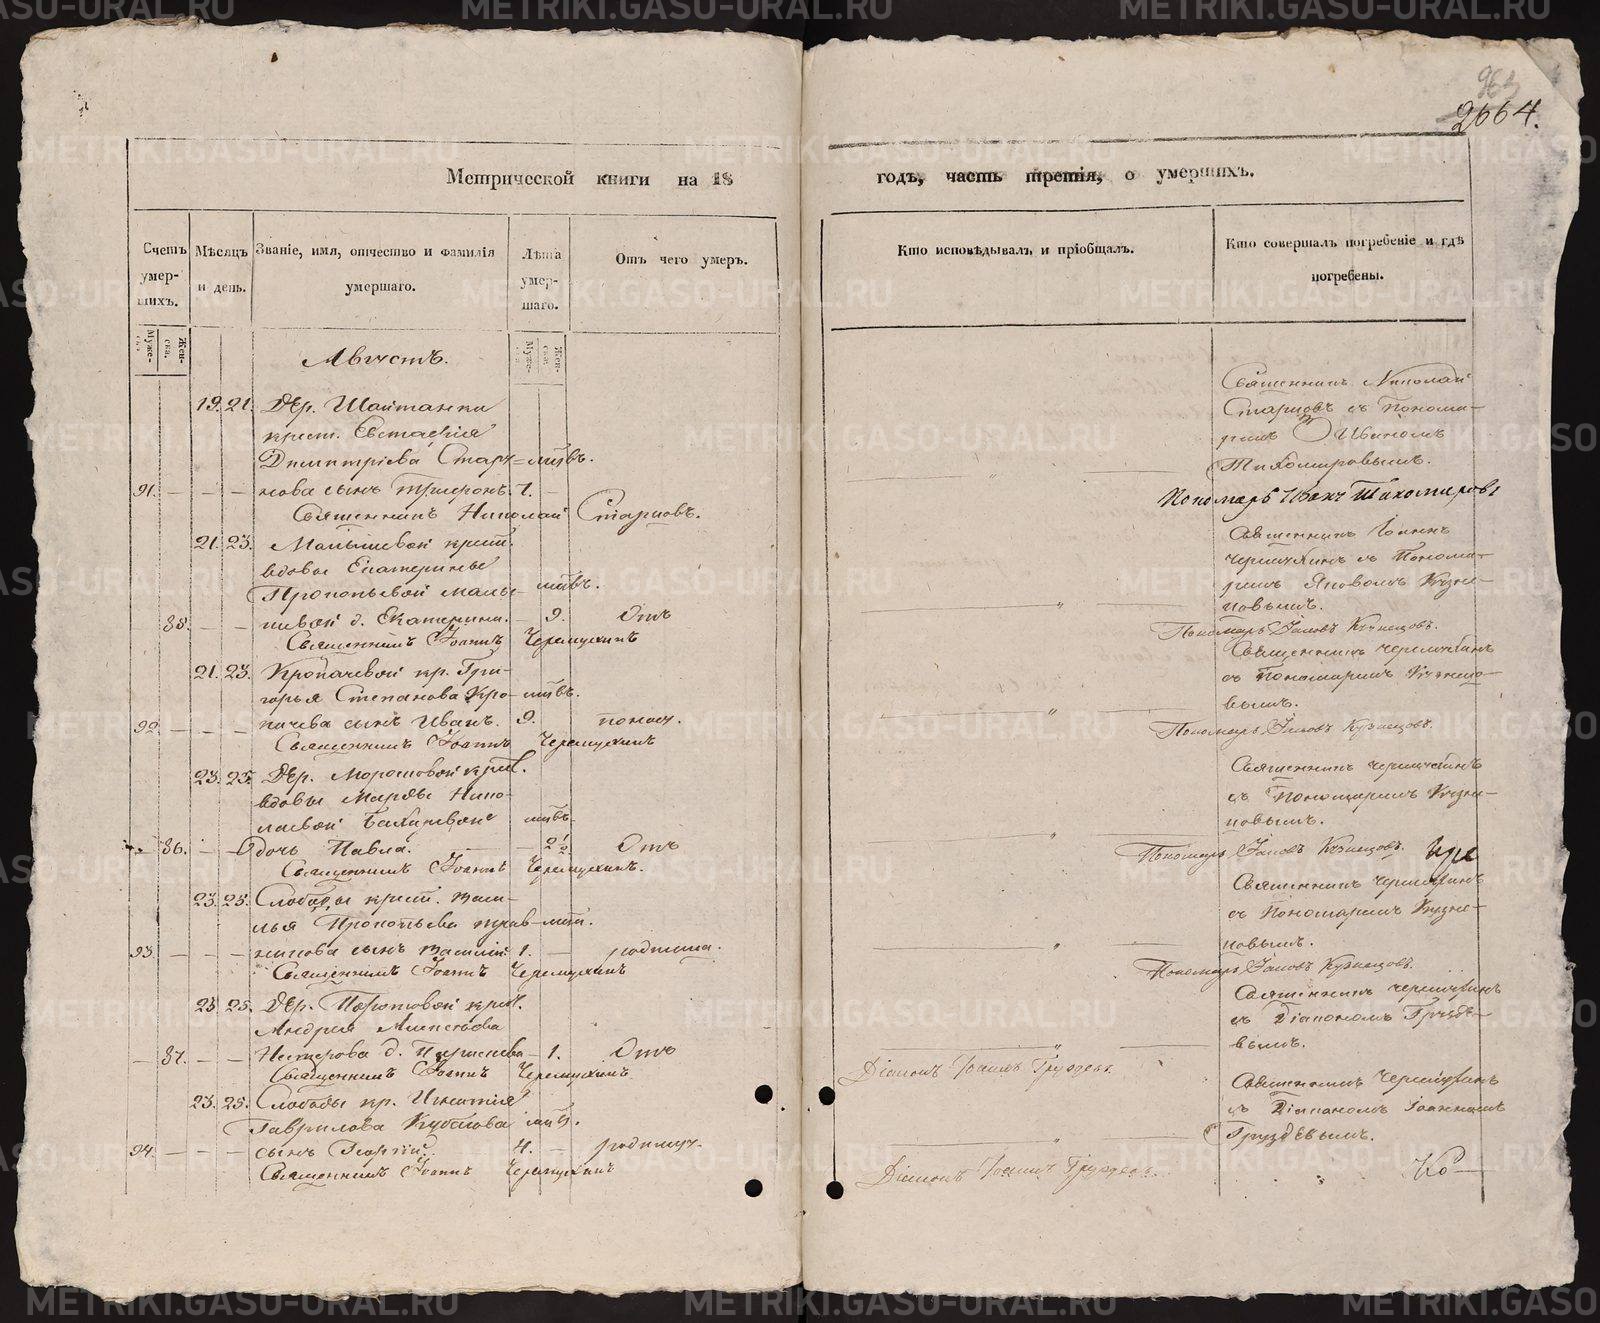 963
2664.
Метрической книги на 18
годъ, часть третія, о умершихъ.
Счетъ умер-шихъ.
Мѣсяцъ и день.
Званіе, имя, отчество и фамилія умершаго.
Лѣта умер-шаго.
Отъ чего умеръ.
Кто исповѣдывалъ и пріобщалъ.
Кто совершалъ погребеніе и гдѣ погребены.
Муже-
Жен-ска.
Муже-
Жен-ска.
Августъ.
19. 21. Дер. Шайтанки
крест. Евстафія
Димитріева Стар-
91. — — — кова сынъ Трифонъ. 1. —
Священникъ Николай Старцовъ.
Священникъ Николай
Старцовъ съ Понома-
ремъ Иваномъ
Тихомировымъ.
Пономарь Иванъ Тихомировъ
21. 23. Малышевой крест.
вдовы Екатерины
Прокопьевой Малы-
88. — — шевой д. Екатерина. — 9. Отъ
Священникъ Іоаннъ Черемухинъ
Священникъ Іоаннъ
Черемухинъ съ Понома-
ремъ Яковомъ Кузне-
цовымъ.
Пономарь Іаковъ Кузнецовъ.
21. 23. Кропачевой кр. Гри-
горья Степанова Кро-
92. — — — пачева сынъ Иванъ. 9. поноса.
Священникъ Іоаннъ Черемухинъ
Священникъ Черемухинъ
съ Пономаремъ Кузнецо-
вымъ.
Пономарь Іаковъ Кузнецовъ.
23. 25. Дер. Морошовой крест.
вдовы Марфы Нико-
лаевой
— 86. — — дочь Павла. — 2 1/2 Отъ
Священникъ Іоаннъ Черемухинъ.
Священникъ Черемухинъ
съ Пономаремъ Кузне-
цовымъ.
Пономарь Іаковъ Кузнецовъ.
23. 25. Слободы крест. Васи-
лья Прокопьева
93. — — — сынъ Василій 1. — родимца.
Священникъ Іоаннъ Черемухинъ
Священникъ Черемухинъ
съ Пономаремъ Кузне-
цовымъ.
Пономарь Іаковъ Кузнецовъ.
23 25. Дер. крест.
Андрея Алексѣева
— 87. — — Нестерова д. — 1. Отъ
Священникъ Іоаннъ Черемухинъ
Священникъ Черемухинъ
съ Діакономъ Груздѣ-
вымъ.
Діаконъ Іоаннъ Груздевъ.
23. 25. Слободы кр. Игнатія
Гаврилова
94. — — — сынъ Георгій 4. — родимца.
Священникъ Іоаннъ Черемухинъ
Священникъ Черемухинъ
съ Діакономъ Іоанномъ
Груздевымъ.
Діаконъ Іоаннъ Груздевъ.
METRIKI.GASO-URAL.RU